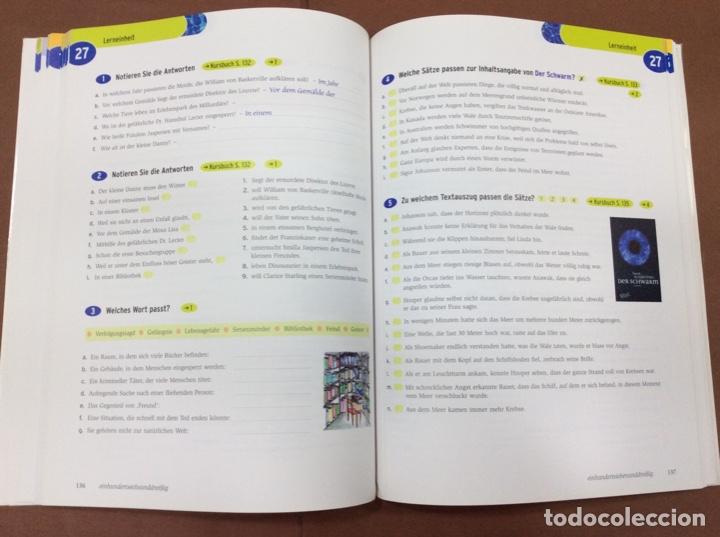 Lerneinheit
27
1 Notieren Sie die Antworten → Kursbuch S. 132 → 1
a. In welchem Jahr passieren die Morde, die William von Baskerville aufklären soll? – Im Jahr
b. Vor welchem Gemälde liegt der ermordete Direktor des Louvre? – Vor dem Gemälde der
c. Welche Tiere leben im Erlebnispark des Milliardärs? –
d. Wo ist der gefährliche Dr. Hannibal Lecter eingesperrt? – In einem
e. Wie heißt Fräulein Jaspersen mit Vornamen? –
f. Wie alt ist der kleine Danny? –
2 Notieren Sie die Antworten → Kursbuch S. 132 → 1
a. Der kleine Danny muss den Winter
b. Auf einer einsamen Insel
c. In einem Kloster
d. Weil sie nicht an einen Unfall glaubt,
e. Vor dem Gemälde der Mona Lisa
f. Mithilfe des gefährlichen Dr. Lecter
g. Schon die erste Besuchergruppe
h. Weil er unter dem Einfluss böser Geister steht,
i. In einer Bibliothek
1. liegt der ermordete Direktor des Louvre.
2. soll William von Baskerville rätselhafte Morde
aufklären.
3. wird von den gefährlichen Tieren gejagt.
4. will der Vater seinen Sohn töten.
5. in einem einsamen Berghotel verbringen.
6. findet der Franziskaner eine geheime Schrift.
7. untersucht Smilla Jaspersen den Tod ihres
kleinen Freundes.
8. leben Dinosaurier in einem Erlebnispark.
9. will Clarice Starling einen Serienmörder
3 Welches Wort passt? → 1
Verfolgungsjagd Gefängnis Lebensgefahr Serienmörder Bibliothek Feind Geister
a. Ein Raum, in dem sich viele Bücher befinden:
b. Ein Gebäude, in dem Menschen eingesperrt werden:
c. Ein krimineller Täter, der viele Menschen tötet:
d. Aufregende Suche nach einer fliehenden Person:
e. Das Gegenteil von ‚Freund‘:
f. Eine Situation, die schnell mit dem Tod enden könnte:
g. Sie gehören nicht zur natürlichen Welt:
136
einhundertsechsunddreißig
Lerneinheit
27
4 Welche Sätze passen zur Inhaltsangabe von Der Schwarm? ✗ → Kursbuch S. 133
→ 2
Überall auf der Welt passieren Dinge, die völlig normal und alltäglich sind.
Vor Norwegen werden auf dem Meeresgrund unheimliche Würmer entdeckt.
Krebse, die keine Augen haben, vergiften das Trinkwasser an der Ostküste Amerikas.
In Kanada werden viele Wale durch Touristenschiffe getötet.
In Australien werden Schwimmer von hochgiftigen Quallen angegriffen.
Auf der Welt denkt niemand an eine Krise, weil sich die Probleme bald von selbst lösen.
Am Anfang glauben Experten, dass die Ereignisse von Terroristen geplant wurden.
Ganz Europa wird durch einen Sturm verwüstet.
Sigur Johanson vermutet als Erster, dass der Feind im Meer wohnt.
5 Zu welchem Textauszug passen die Sätze? 1 2 3 4 → Kursbuch S. 135 → 4
a. Johanson sah, dass der Horizont plötzlich dunkel wurde.
b. Anawak konnte keine Erklärung für das Verhalten der Wale finden.
c. Während sie die Klippen hinaufstiegen, fiel Linda hin.
d. Als Bauer aus seinem kleinen Zimmer herauskam, hörte er laute Schreie.
e. Aus dem Meer stiegen riesige Blasen auf, obwohl das Wetter völlig ruhig war.
f. Als die Orcas tiefer ins Wasser tauchten, wusste Anawak, dass sie gleich
angreifen würden.
g. Hooper glaubte selbst nicht daran, dass die Krebse ungefährlich sind, obwohl
er das zu seiner Frau sagte.
h. In wenigen Monaten hatte sich das Meer um mehrere hundert Meter zurückgezogen.
i. Eine Welle, die fast 30 Meter hoch war, raste auf das Ufer zu.
j. Als Shoemaker endlich verstanden hatte, was die Wale taten, wurde er blass vor Angst.
k. Als Bauer mit dem Kopf auf den Schiffsboden fiel, zerbrach seine Brille.
l. Als er am Leuchtturm ankam, konnte Hooper sehen, dass der ganze Strand voll von Krebsen war.
m. Mit schrecklicher Angst erkannte Bauer, dass das Schiff, auf dem er sich befand, in diesem Moment
vom Meer verschluckt wurde.
n. Aus dem Meer kamen immer mehr Krebse.
DER SCHWARM
einhundertsiebenunddreißig
137
todocoleccion
todocoleccion.net